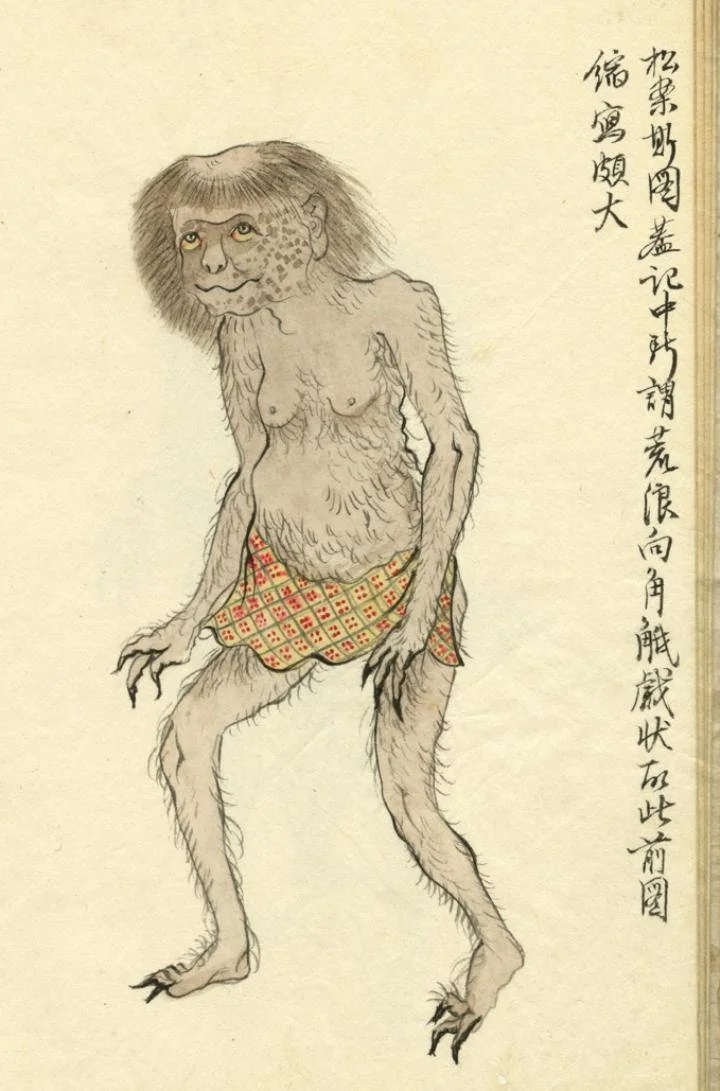 松案斯図蓋記中所謂荒浪向角觝戯状故此前図
縮寫頗大